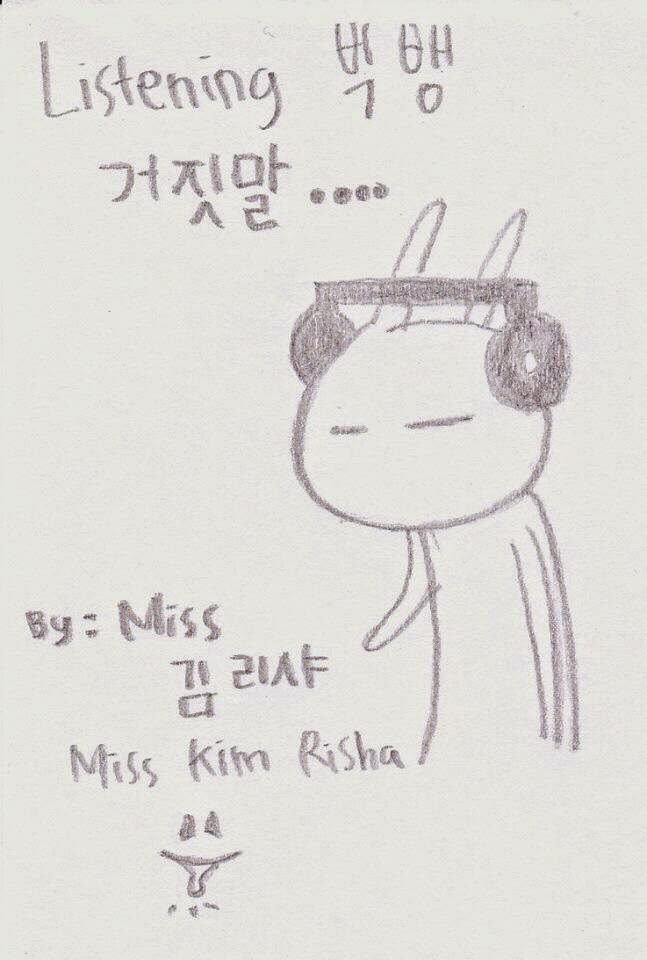 Listening 빅 뱅
거짓말....
By: Miss
김 리샤
Miss Kim Risha